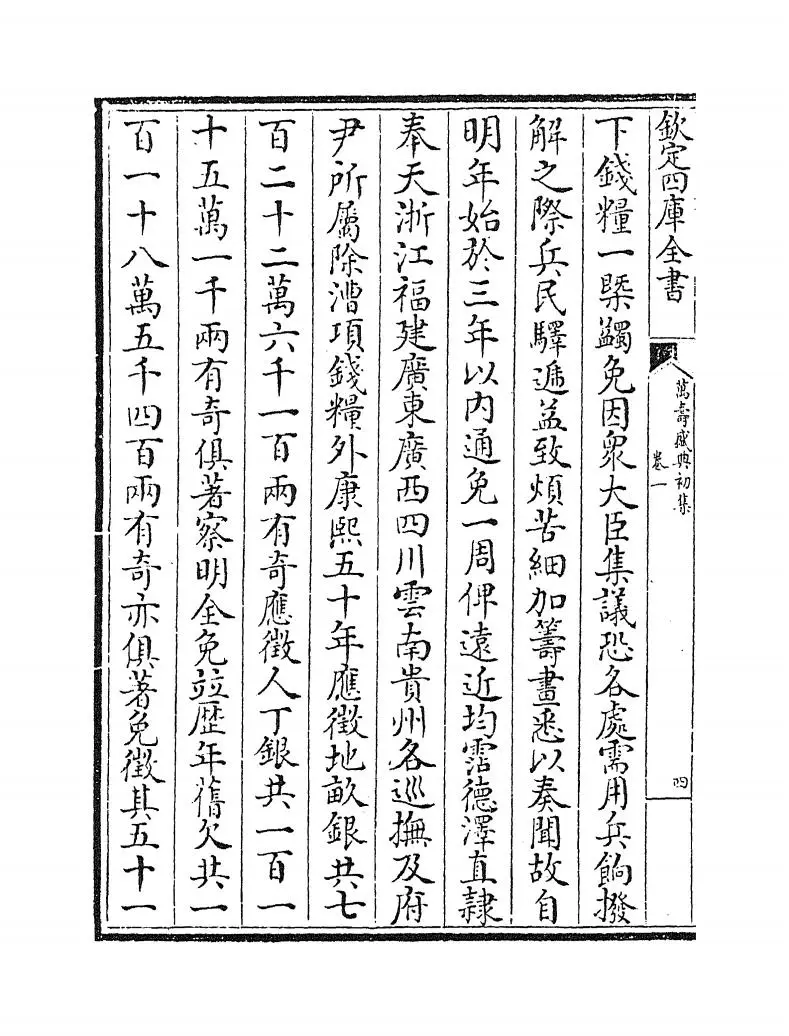 欽定四庫全書
萬壽盛典初集
卷一
四
下錢糧一槩蠲免因衆大臣集議恐各處需用兵餉撥
解之際兵民驛遞益致煩苦細加籌畫悉以奏聞故自
明年始於三年以內通免一周俾遠近均霑德澤直隸
奉天浙江福建廣東廣西四川雲南貴州各巡撫及府
尹所屬除漕項錢糧外康熙五十年應徵地畝銀共七
百二十二萬六千一百兩有奇應徵人丁銀共一百一
十五萬一千兩有奇俱著察明全免竝歷年舊欠共一
百一十八萬五千四百兩有奇亦俱著免徵其五十一